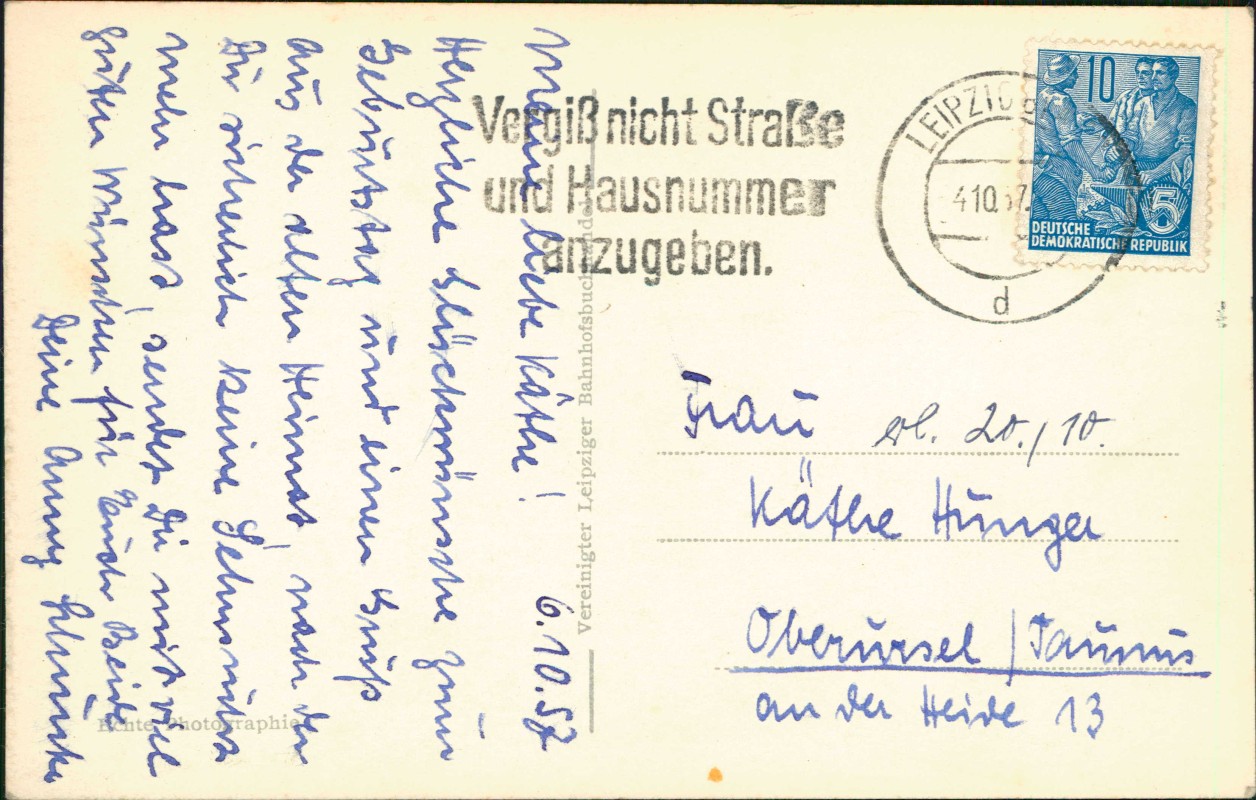 Meine liebe Käthe!
6.10.57
Herzliche Glückwünsche zum
Geburtstag und einen Gruß
aus der alten Heimat, nach der
Du sicherlich keine Sehnsucht
mehr hast, sendet Dir mit viel
guten Wünschen für Euch Beide
Deine Anny
Vergiß nicht Straße
und Hausnummer
anzugeben.
LEIPZIG
4.10.57
d
10
5
DEUTSCHE
DEMOKRATISCHE REPUBLIK
Frau
20./10.
Käthe Hunger
Oberursel / Taunus
an der Heide 13
Vereinigter Leipziger Bahnhofsbuchhandel
Echte Photographie